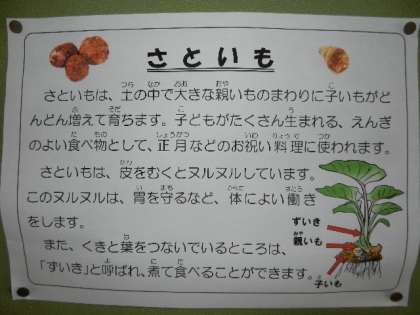 さといも
さといもは、土の中で大きな親いものまわりに子いもがど
んどん増えて育ちます。子どもがたくさん生まれる、えんぎ
のよい食べ物として、正月などのお祝い料理に使われます。
さといもは、皮をむくとヌルヌルしています。
このヌルヌルは、胃を守るなど、体によい働き
をします。
また、くきと葉をつないでいるところは、
「ずいき」と呼ばれ、煮て食べることができます。
ずいき
親いも
子いも